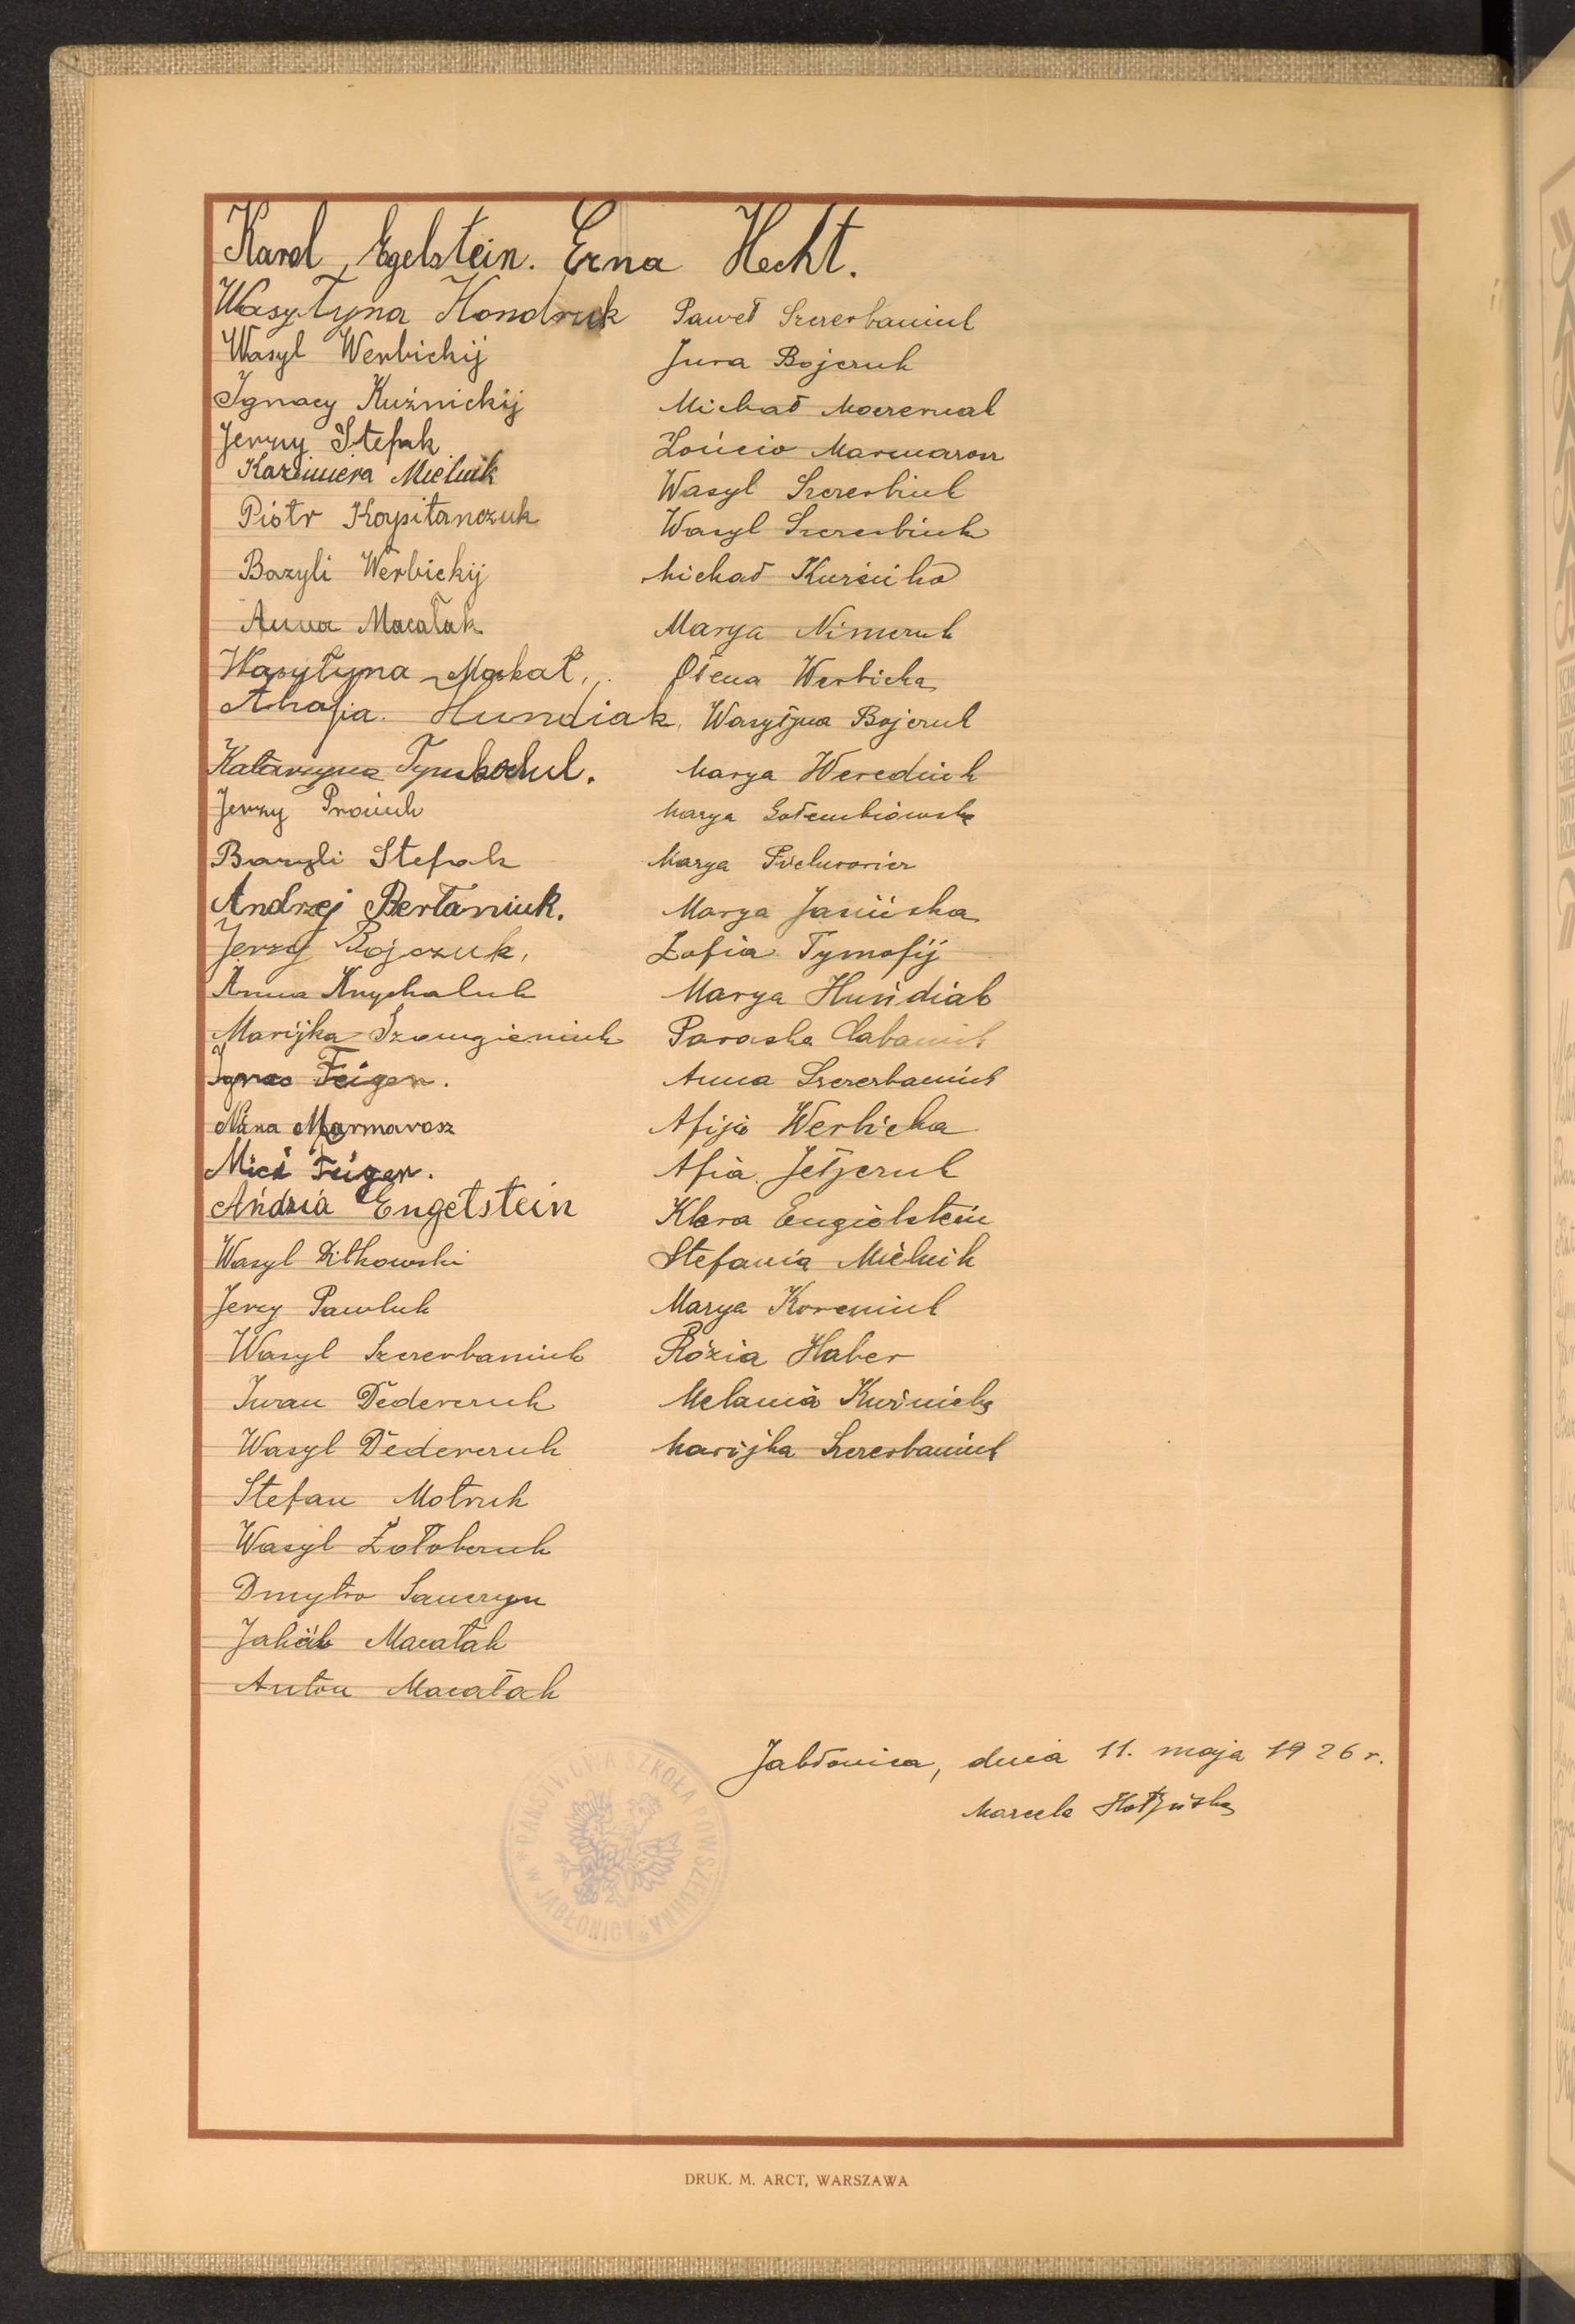 Karol Egelstein. Erna Hecht.
Wasyłyna Hondruk
Wasyl Werbickij
Ignacy Kuźnickij
Jerzy Stefak
Kazimiera Mielnik
Piotr Kapitanczuk
Bazyli Werbickij
Anna Macałak
Wasyłyna Moskał,
Ahafia Hundiak
Katarzyna
Jerzy Prociuk
Bazyli Stefak
Andrzej Berłaniuk.
Jerzy Bojczuk,
Anna Knychaluk
Marijka
Ignac Feigen.
Nina Marmarosz
Mici Feigen.
Andzia Engelstein
Wasyl Ditkowski
Jerzy Pawluk
Wasyl Szczerbaniuk
Iwan Dederczuk
Wasyl Dederczuk
Stefan Motruk
Wasyl Żołobczuk
Dmytro Sauczyn
Jakób Macałak
Anton Macałak
Paweł Szczerbaniuk
Jura Bojczuk
Michał
Lońcio Marmarosz
Wasyl Szczerbiuk
Wasyl Szczerbiuk
Michał Kuźnicko
Marya Nimczuk
Ołena Werbicka
Wasyłyna Bojczuk
Marya Werediuk
Marya Gołembiowska
Marya
Marya Jasińska
Zofia Tymofij
Marya Hundiak
Paraska Cabaniuk
Anna Szczerbaniuk
Afija Werbicka
Afia Jełyczuk
Klara Engielstein
Stefania Mielnik
Marya Koreniuk
Rózia Haber
Melania Kuźnicka
Marijka Szczerbaniuk
Jabłonica, dnia 11. maja 1926 r.
Marcela
PAŃSTWOWA SZKOŁA POWSZECHNA * W JABŁONICY *
DRUK. M. ARCT, WARSZAWA